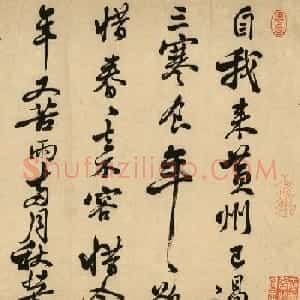 自我来黄州已過
三寒食年〻欲
惜春〻去不容惜今
年又苦雨兩月秋蕭
Shufaziliao.com